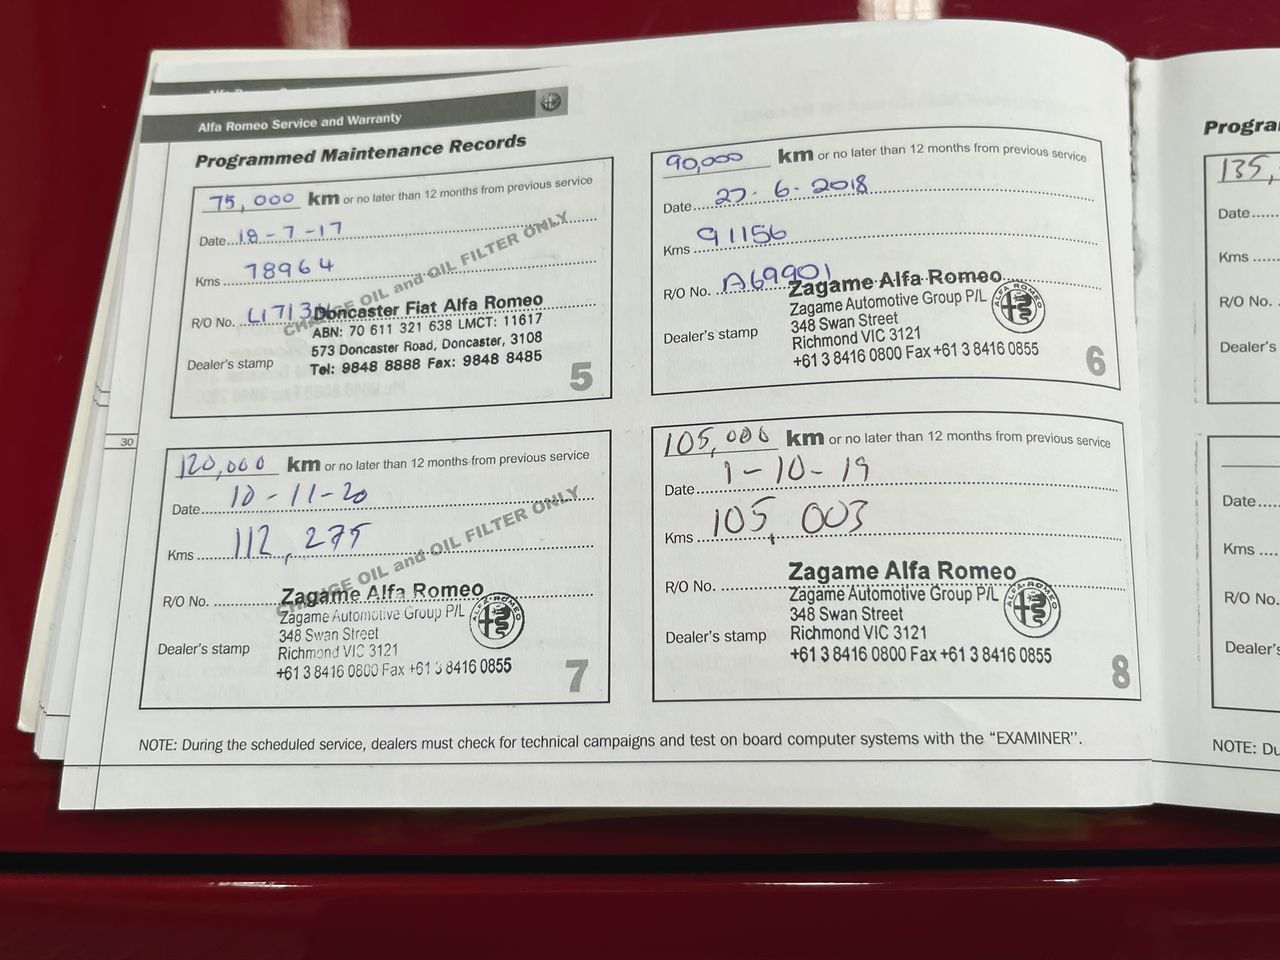 Alfa Romeo Service and Warranty
Programmed Maintenance Records
75,000 km or no later than 12 months from previous service
Date 18-7-17
Kms 78964
CHANGE OIL and OIL FILTER ONLY
R/O No.
Doncaster Fiat Alfa Romeo
ABN: 70 611 321 638 LMCT: 11617
573 Doncaster Road, Doncaster, 3108
Tel: 9848 8888 Fax: 9848 8485
Dealer's stamp
5
90,000 km or no later than 12 months from previous service
Date 27-6-2018
Kms 91156
R/O No. A69901
Zagame Alfa Romeo
Zagame Automotive Group P/L
348 Swan Street
Richmond VIC 3121
+61 3 8416 0800 Fax +61 3 8416 0855
ALFA ROMEO
Dealer's stamp
6
30
120,000 km or no later than 12 months from previous service
Date 10-11-20
Kms 112,275
CHANGE OIL and OIL FILTER ONLY
R/O No.
Zagame Alfa Romeo
Zagame Automotive Group P/L
348 Swan Street
Richmond VIC 3121
+61 3 8416 0800 Fax +61 3 8416 0855
ALFA ROMEO
Dealer's stamp
7
105,000 km or no later than 12 months from previous service
Date 1-10-19
Kms 105,003
R/O No.
Zagame Alfa Romeo
Zagame Automotive Group P/L
348 Swan Street
Richmond VIC 3121
+61 3 8416 0800 Fax +61 3 8416 0855
ALFA ROMEO
Dealer's stamp
8
NOTE: During the scheduled service, dealers must check for technical campaigns and test on board computer systems with the “EXAMINER”.
Progra
135,
Date
Kms
R/O No.
Dealer's
Date
Kms
R/O No.
Dealer's
NOTE: Du